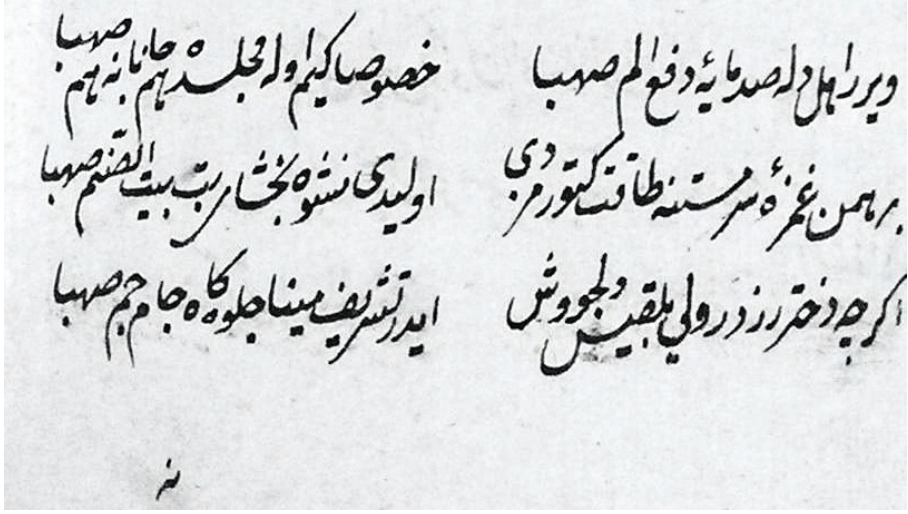 ویرر اهل دله صد مایۀ دفع الم صهبا خصوصا کیم اوله مجلسده هم جانانه هم صهبا
برهمن غمزۀ سرمستنه طاقت کتورمزدی اولیدی نشوه بخشای بت بیت الصنم صهبا
اکرچه دختر رزدر ولی بلقیس دلجووش ایدر تشریف مینا جلوه کاه جام جم صهبا
نه